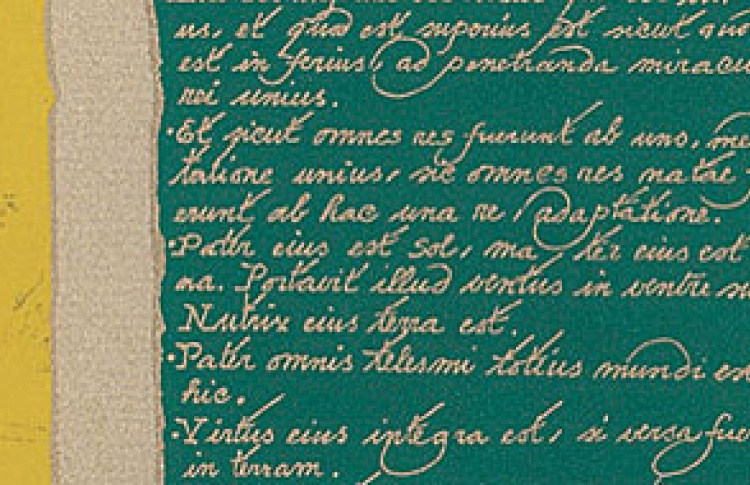 us, et quod est superius est sicut quod
est inferius, ad penetranda miracu
rei unius.
·Et sicut omnes res fuerunt ab uno, me
tatione unius, sic omnes res natae
erunt ab hac una re, adaptatione.
·Pater eius est Sol, mater eius est
na. Portavit illud ventus in ventre
Nutrix eius terra est.
·Pater omnis telesmi totius mundi es
hic.
·Virtus eius integra est, si versa fue
in terram.